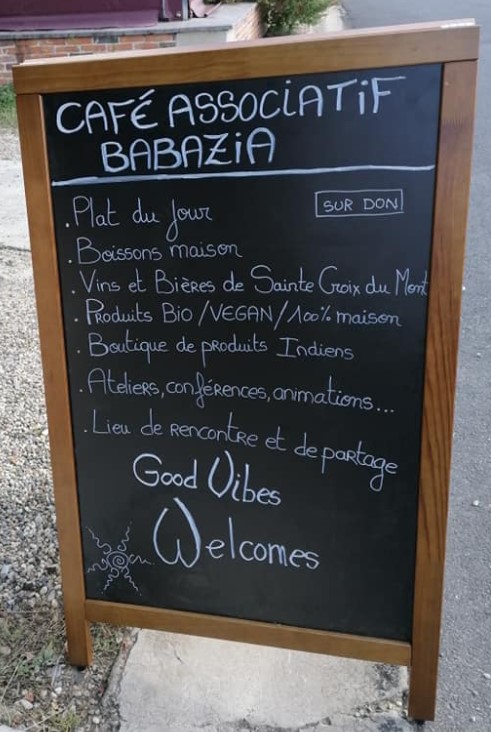 CAFÉ ASSOCIATIF
BABAZIA
. Plat du Jour
SUR DON
. Boissons maison
. Vins et Bières de Sainte Croix du Mont
. PRoduits Bio / VEGAN / 100% maison
. Boutique de produits Indiens
. Ateliers, conférences, animations...
. Lieu de REncontre et de partage
Good Vibes
Welcomes